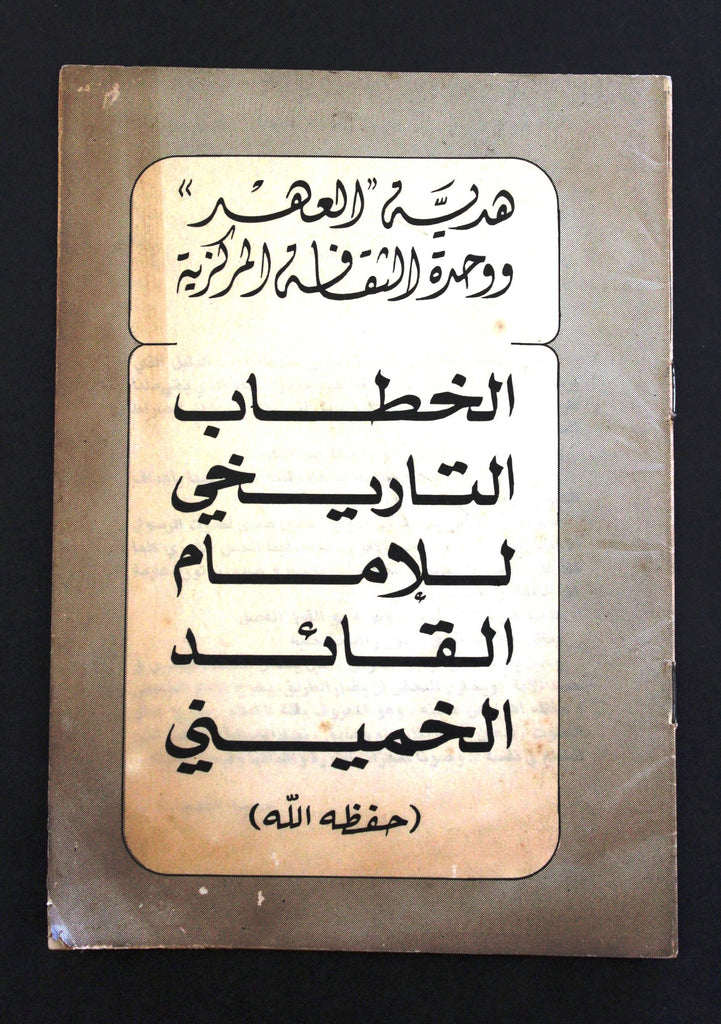 هديّة "العهد"
ووحدة الثقافة المركزية
الخطاب
التاريخي
للإمام
القائد
الخميني
(حفظه الله)